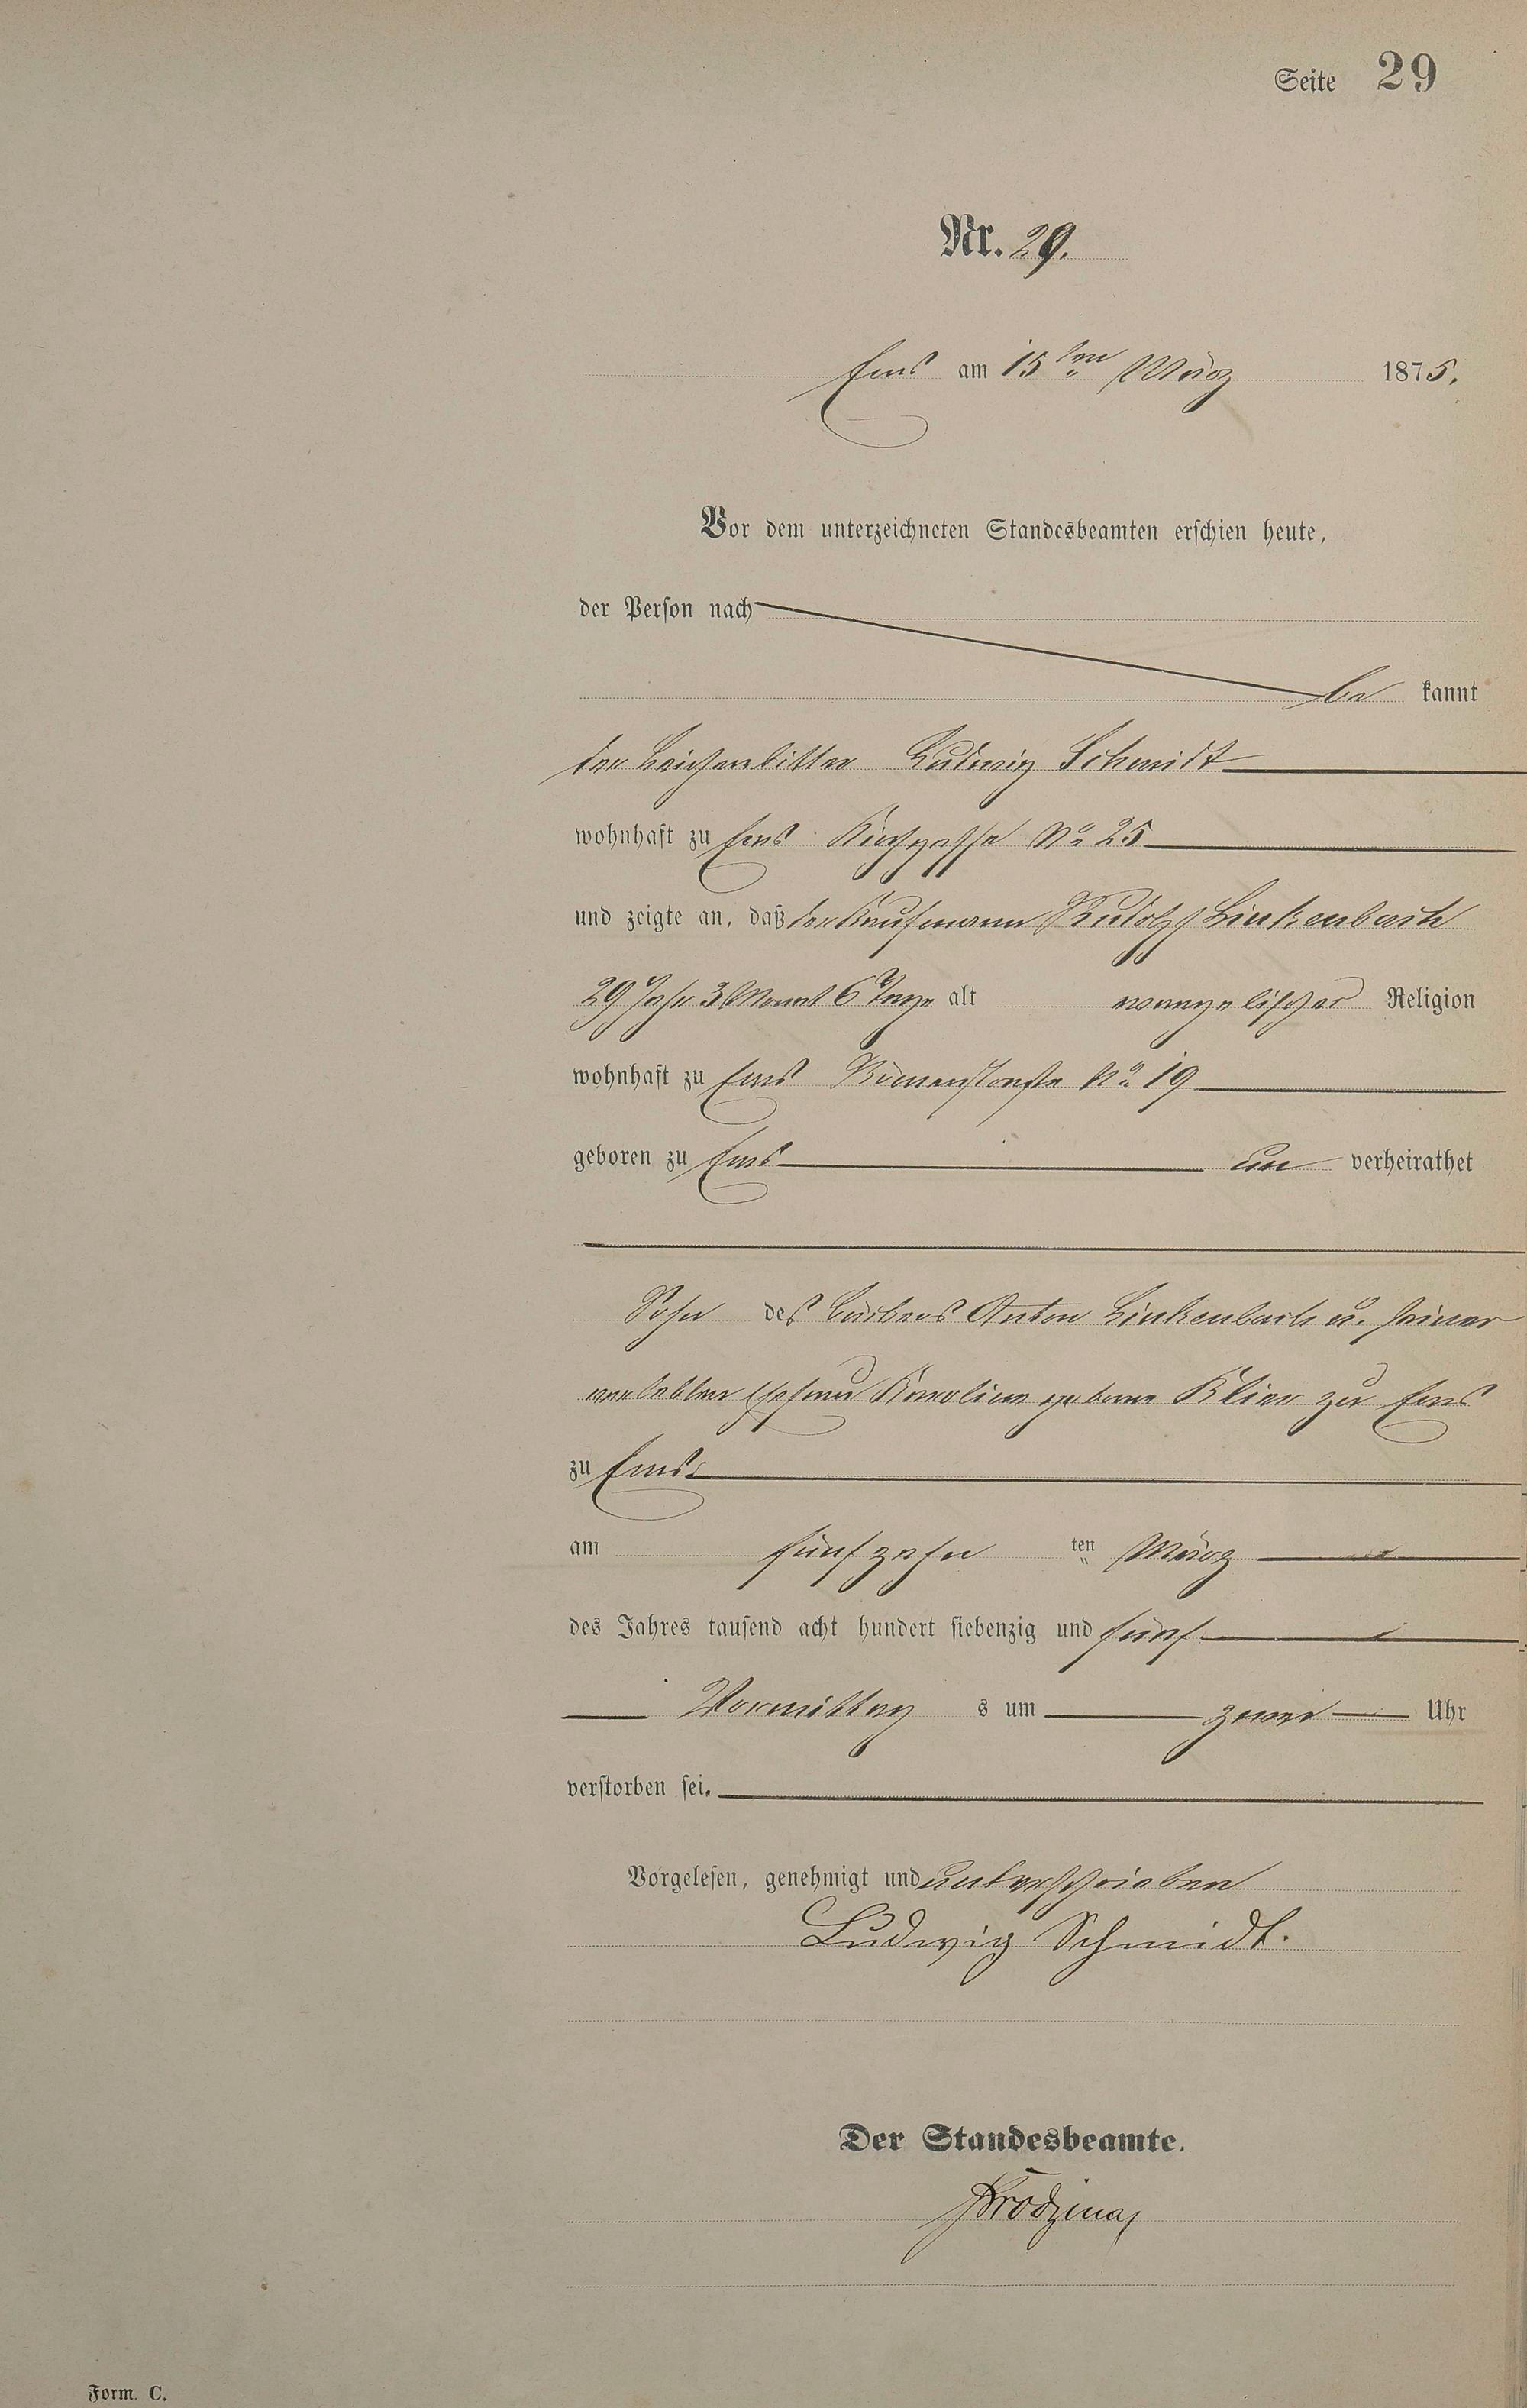 Seite 29
Nr. 29.
Ems am 15ten März 1875.
Vor dem unterzeichneten Standesbeamten erschien heute,
der Person nach
be kannt
der Leichenbitter Ludwig Schmidt
wohnhaft zu Ems Kirchgasse No 25
und zeigte an, daß der Kaufmann Rudolf Linkenbach
29 Jahr 3 Monat 6 Tage alt evangelischer Religion
wohnhaft zu Ems Römerstraße No 19
geboren zu Ems un verheirathet
Sohn des Anton Linkenbach u. seiner
verlebten Ehefrau Karoline geborne Klier zu Ems
zu Ems
am fünfzehn ten März
des Jahres tausend acht hundert siebenzig und fünf
Vormittag s um zwei Uhr
verstorben sei.
Vorgelesen, genehmigt und unterschrieben
Ludwig Schmidt.
Der Standesbeamte.
Form. C.